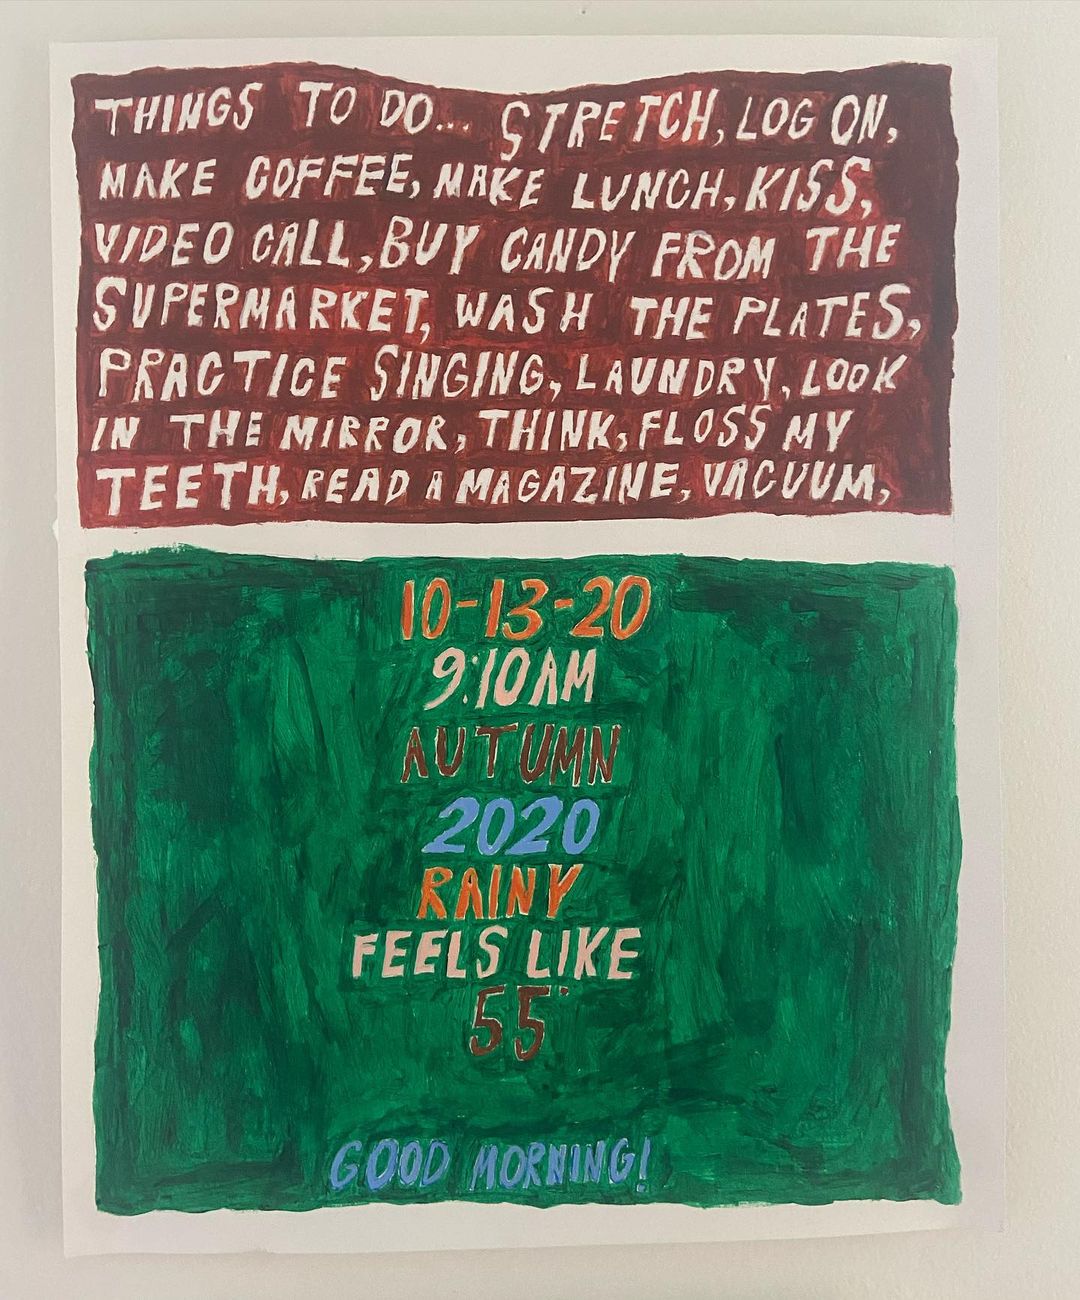 THINGS TO DO... STRETCH, LOG ON,
MAKE COFFEE, MAKE LUNCH, KISS,
VIDEO CALL, BUY CANDY FROM THE
SUPERMARKET, WASH THE PLATES,
PRACTICE SINGING, LAUNDRY, LOOK
IN THE MIRROR, THINK, FLOSS MY
TEETH, READ A MAGAZINE, VACUUM,
10-13-20
9:10AM
AUTUMN
2020
RAINY
FEELS LIKE
55°
GOOD MORNING!